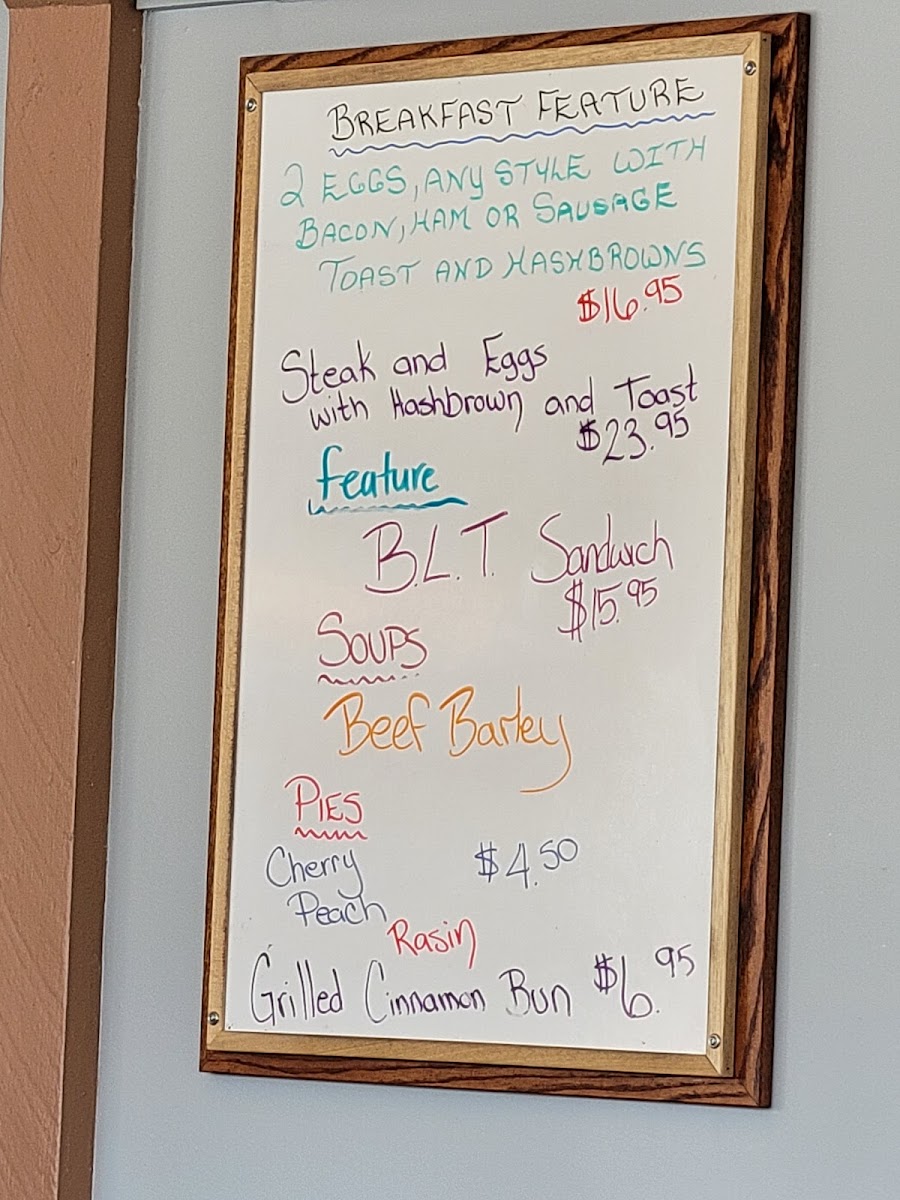 BREAKFAST FEATURE
2 EGGS, ANY STYLE WITH
BACON, HAM OR SAUSAGE
TOAST AND HASHBROWNS
$16.95
Steak and Eggs
with Hashbrown and Toast
$23.95
feature
B.L.T. Sandwich
$15.95
SOUPS
Beef Barley
PIES
Cherry $4.50
Peach
Rasin
Grilled Cinnamon Bun $6.95